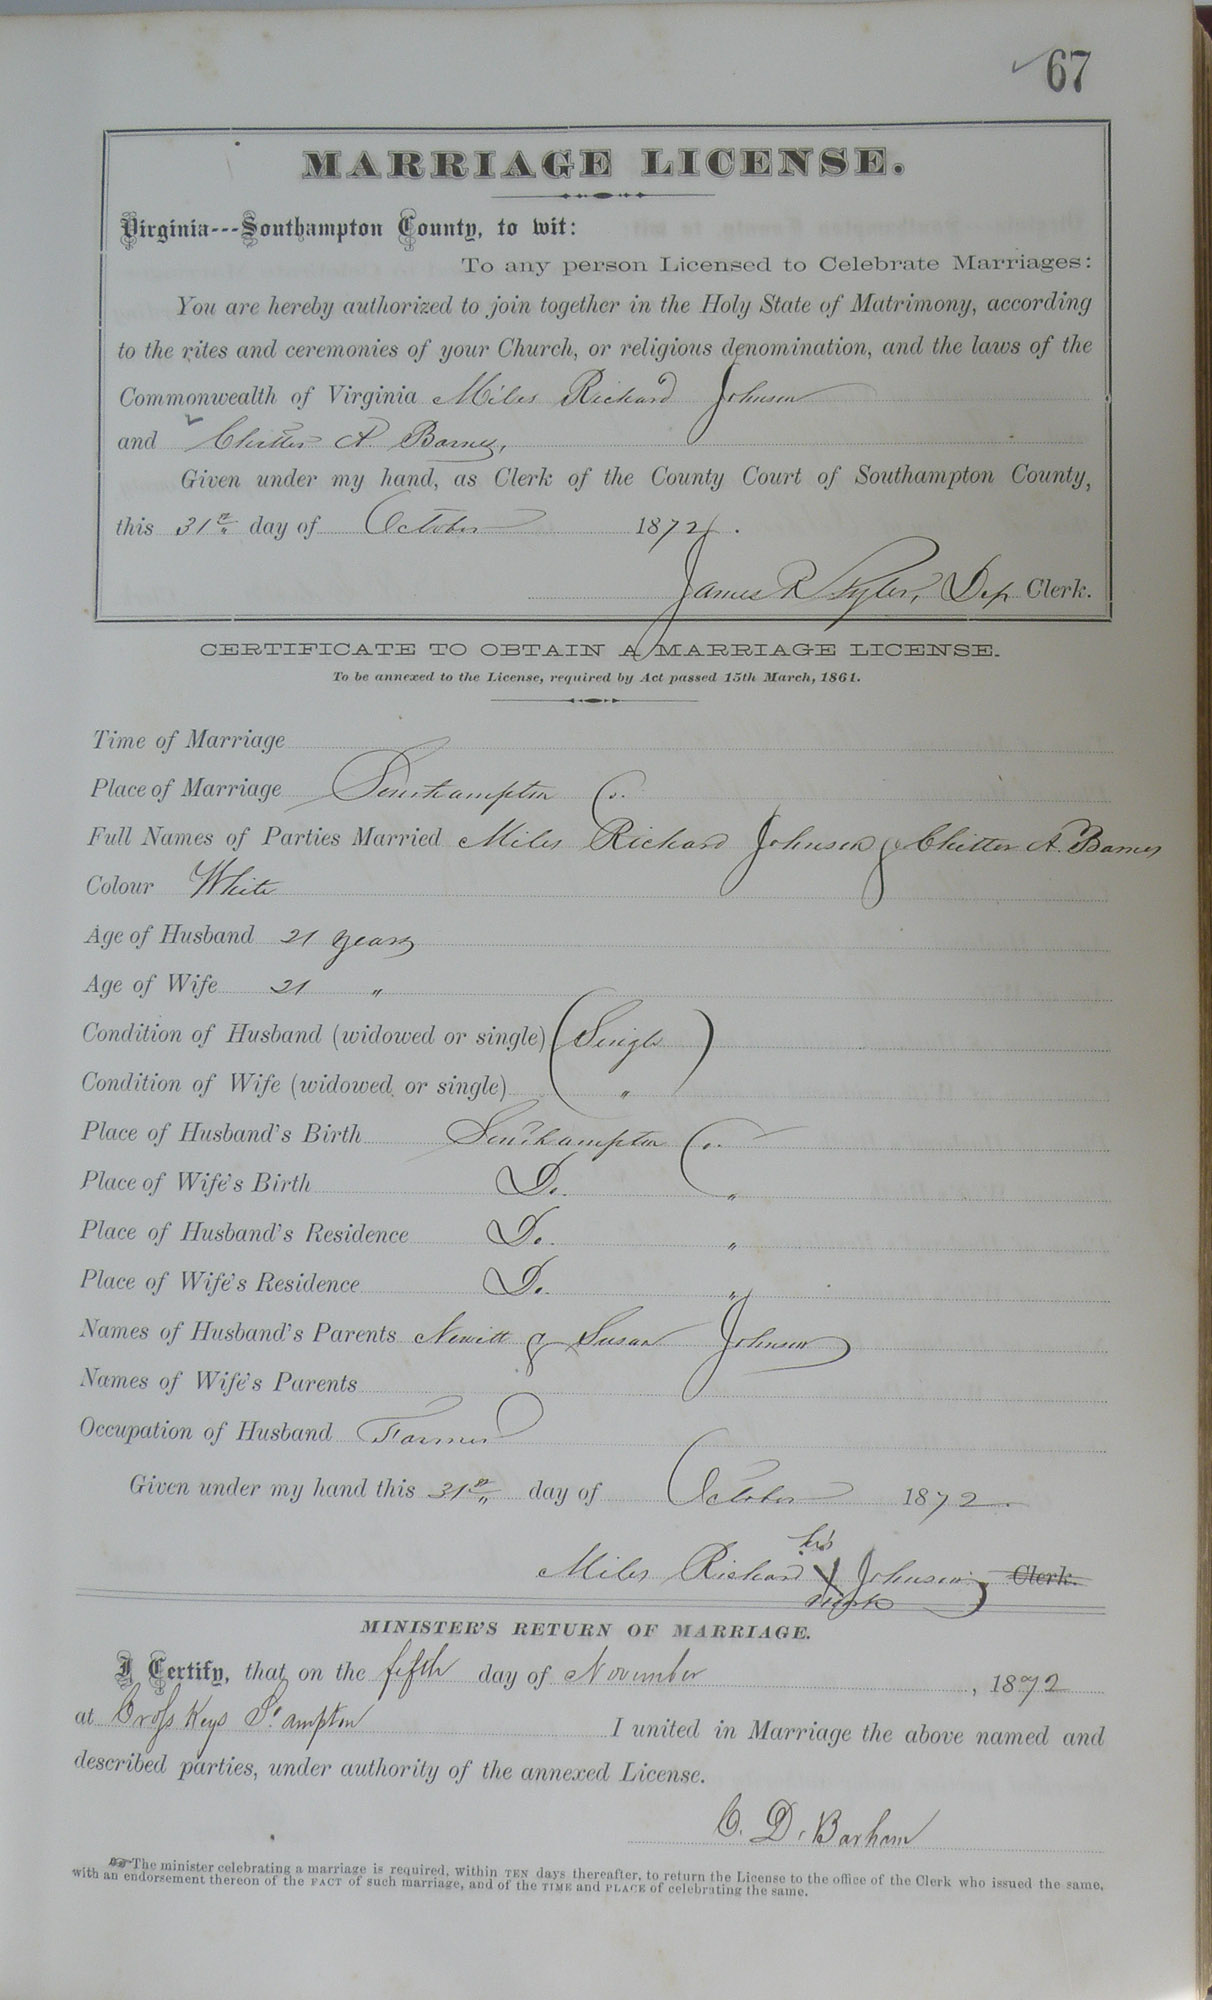 67
MARRIAGE LICENSE.
Virginia---Southampton County, to wit:
To any person Licensed to Celebrate Marriages:
You are hereby authorized to join together in the Holy State of Matrimony, according
to the rites and ceremonies of your Church, or religious denomination, and the laws of the
Commonwealth of Virginia Miles Richard Johnson
and Chitter A. Barnes,
Given under my hand, as Clerk of the County Court of Southampton County,
this 31st day of October 1872.
James R Tyler, Dep Clerk.
CERTIFICATE TO OBTAIN A MARRIAGE LICENSE.
To be annexed to the License, required by Act passed 15th March, 1861.
Time of Marriage
Place of Marriage Southampton Co.
Full Names of Parties Married Miles Richard Johnson & Chitter A. Barnes
Colour White
Age of Husband 21 years
Age of Wife 21 "
Condition of Husband (widowed or single) (Single)
Condition of Wife (widowed or single) "
Place of Husband's Birth Southampton Co.
Place of Wife's Birth Do. "
Place of Husband's Residence Do. "
Place of Wife's Residence Do. "
Names of Husband's Parents Newitt & Susan Johnson
Names of Wife's Parents
Occupation of Husband Farmer
Given under my hand this 31st day of October 1872.
his
Miles Richard X Johnson Clerk.
mark
MINISTER'S RETURN OF MARRIAGE.
I Certify, that on the fifth day of November, 1872
at Cross Keys S'ampton I united in Marriage the above named and
described parties, under authority of the annexed License.
C. D. Barham
☞The minister celebrating a marriage is required, within TEN days thereafter, to return the License to the office of the Clerk who issued the same,
with an endorsement thereon of the FACT of such marriage, and of the TIME and PLACE of celebrating the same.